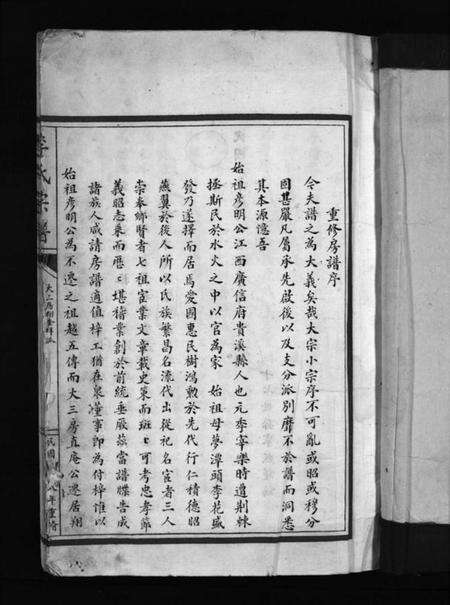 重修房譜序
今夫譜之為大義矣哉大宗小宗序不可亂或昭或穆分
固甚嚴凡屬承先啟後以及支分派別靡不於譜而洞悉
其本源憶吾
始祖彥明公江西廣信府貴溪縣人也元季宰樂時遭荆棘
拯斯民於水火之中以官為家 始祖母夢潭頭李花盛
發乃遂擇而居焉愛國惠民樹鴻勳於先代行仁積德昭
燕翼於後人所以氏族繁昌名流代出從祀名宦者三人
崇奉鄉賢者七祖宦業文章載史策而班班可考忠孝節
義昭志乘而歷歷堪稽業創於前統垂厥後當譜牒告成
諸族人咸請房譜適值梓工猶在泉謹事即為付梓惟以
始祖彥明公為不遷之祖越五傳而大三房直庵公遷居翔
李氏宗譜
民國 八年重脩